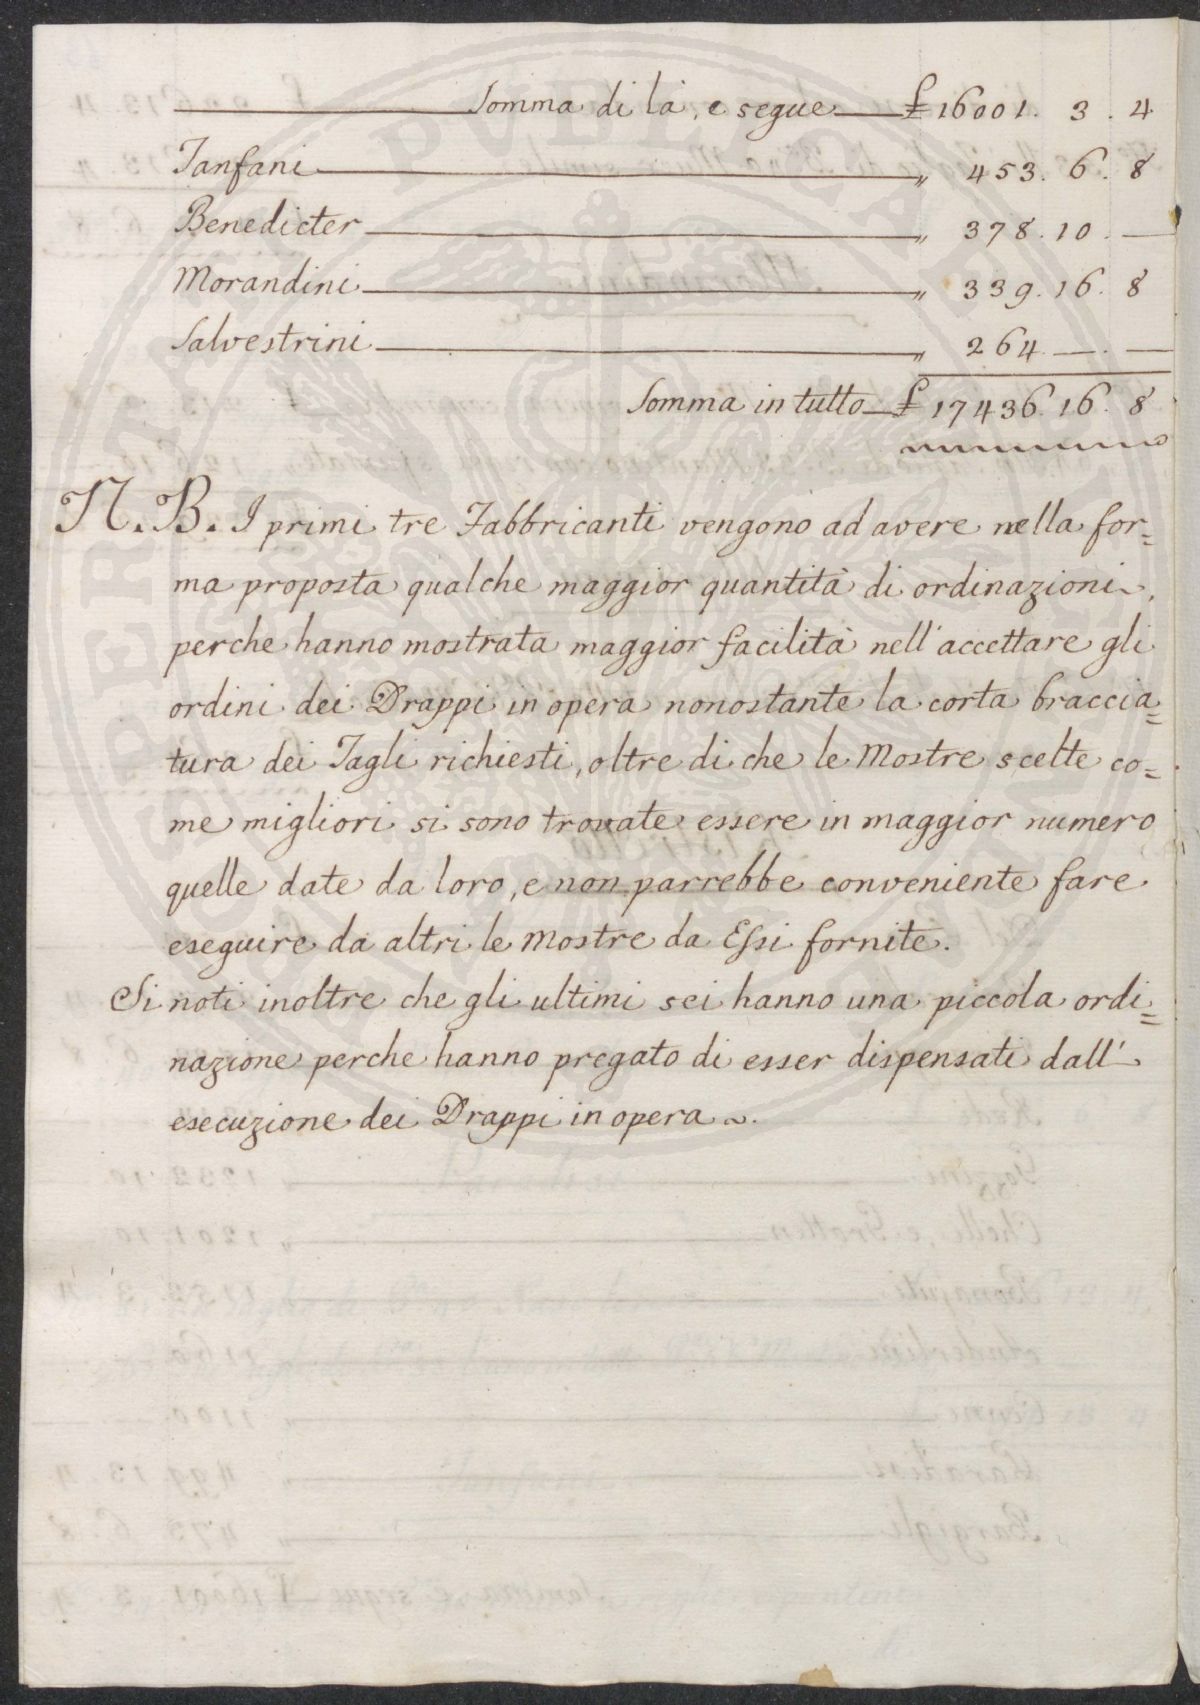 Somma di là, e segue £ 16001. 3. 4
Fanfani " 453. 6. 8
Benedicter " 378. 10. —
Morandini " 339. 16. 8
Salvestrini " 264. —. —
Somma in tutto £ 17436. 16. 8
N. B. I primi tre Fabbricanti vengono ad avere nella for=
ma proposta qualche maggior quantità di ordinazioni,
perche hanno mostrata maggior facilità nell'accettare gli
ordini dei Drappi in opera nonostante la corta braccia=
tura dei Tagli richiesti, oltre di che le Mostre scelte co=
me migliori si sono trovate essere in maggior numero
quelle date da loro, e non parrebbe conveniente fare
eseguire da altri le Mostre da Essi fornite.
Si noti inoltre che gli ultimi sei hanno una piccola ordi=
nazione perche hanno pregato di esser dispensati dall'
esecuzione dei Drappi in opera ~.